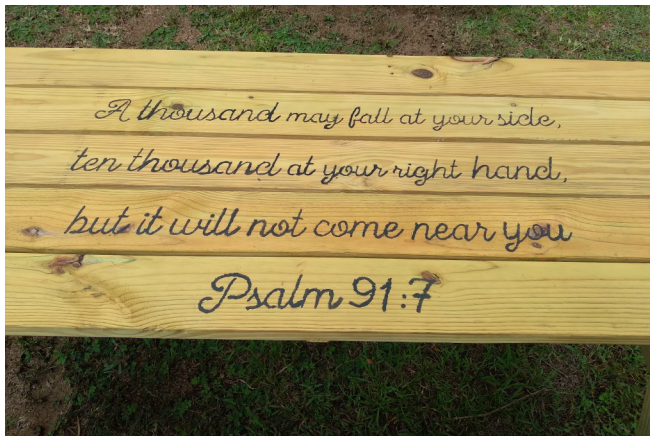 A thousand may fall at your side,
ten thousand at your right hand,
but it will not come near you
Psalm 91:7